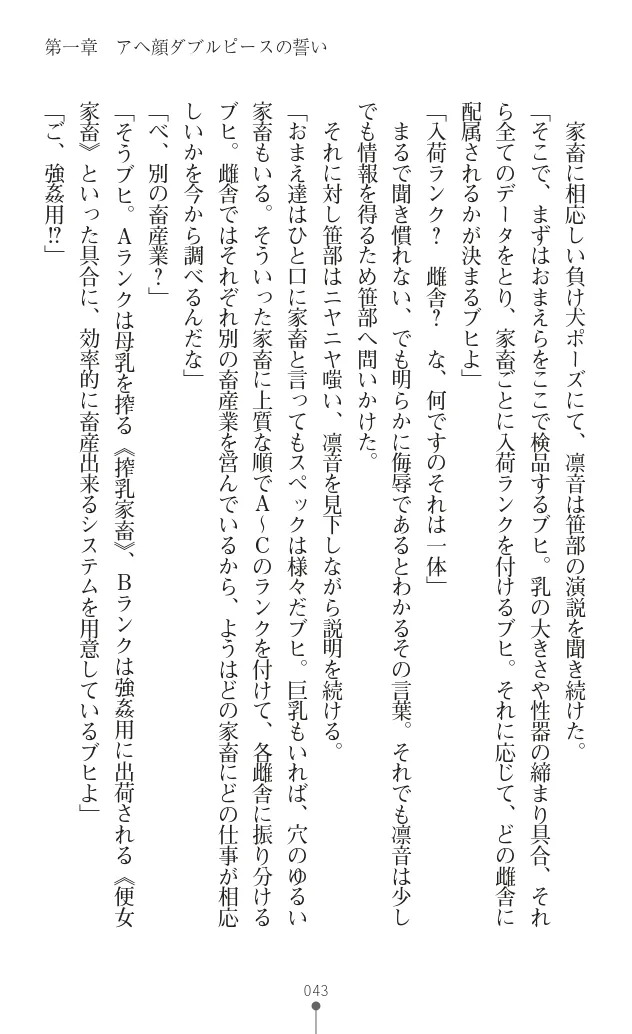 第一章　アヘ顔ダブルピースの誓い
　家畜に相応しい負け犬ポーズにて、凛音は笹部の演説を聞き続けた。
「そこで、まずはおまえらをここで検品するブヒ。乳の大きさや性器の締まり具合、それ
ら全てのデータをとり、家畜ごとに入荷ランクを付けるブヒ。それに応じて、どの雌舎に
配属されるかが決まるブヒよ」
「入荷ランク？　雌舎？　な、何ですのそれは一体」
　まるで聞き慣れない、でも明らかに侮辱であるとわかるその言葉。それでも凛音は少し
でも情報を得るため笹部へ問いかけた。
　それに対し笹部はニヤニヤ嗤い、凛音を見下しながら説明を続ける。
「おまえ達はひと口に家畜と言ってもスペックは様々だブヒ。巨乳もいれば、穴のゆるい
家畜もいる。そういった家畜に上質な順でＡ～Ｃのランクを付けて、各雌舎に振り分ける
ブヒ。雌舎ではそれぞれ別の畜産業を営んでいるから、ようはどの家畜にどの仕事が相応
しいかを今から調べるんだな」
「べ、別の畜産業？」
「そうブヒ。Ａランクは母乳を搾る《搾乳家畜》、Ｂランクは強姦用に出荷される《便女
家畜》といった具合に、効率的に畜産出来るシステムを用意しているブヒよ」
「ご、強姦用!?」
043